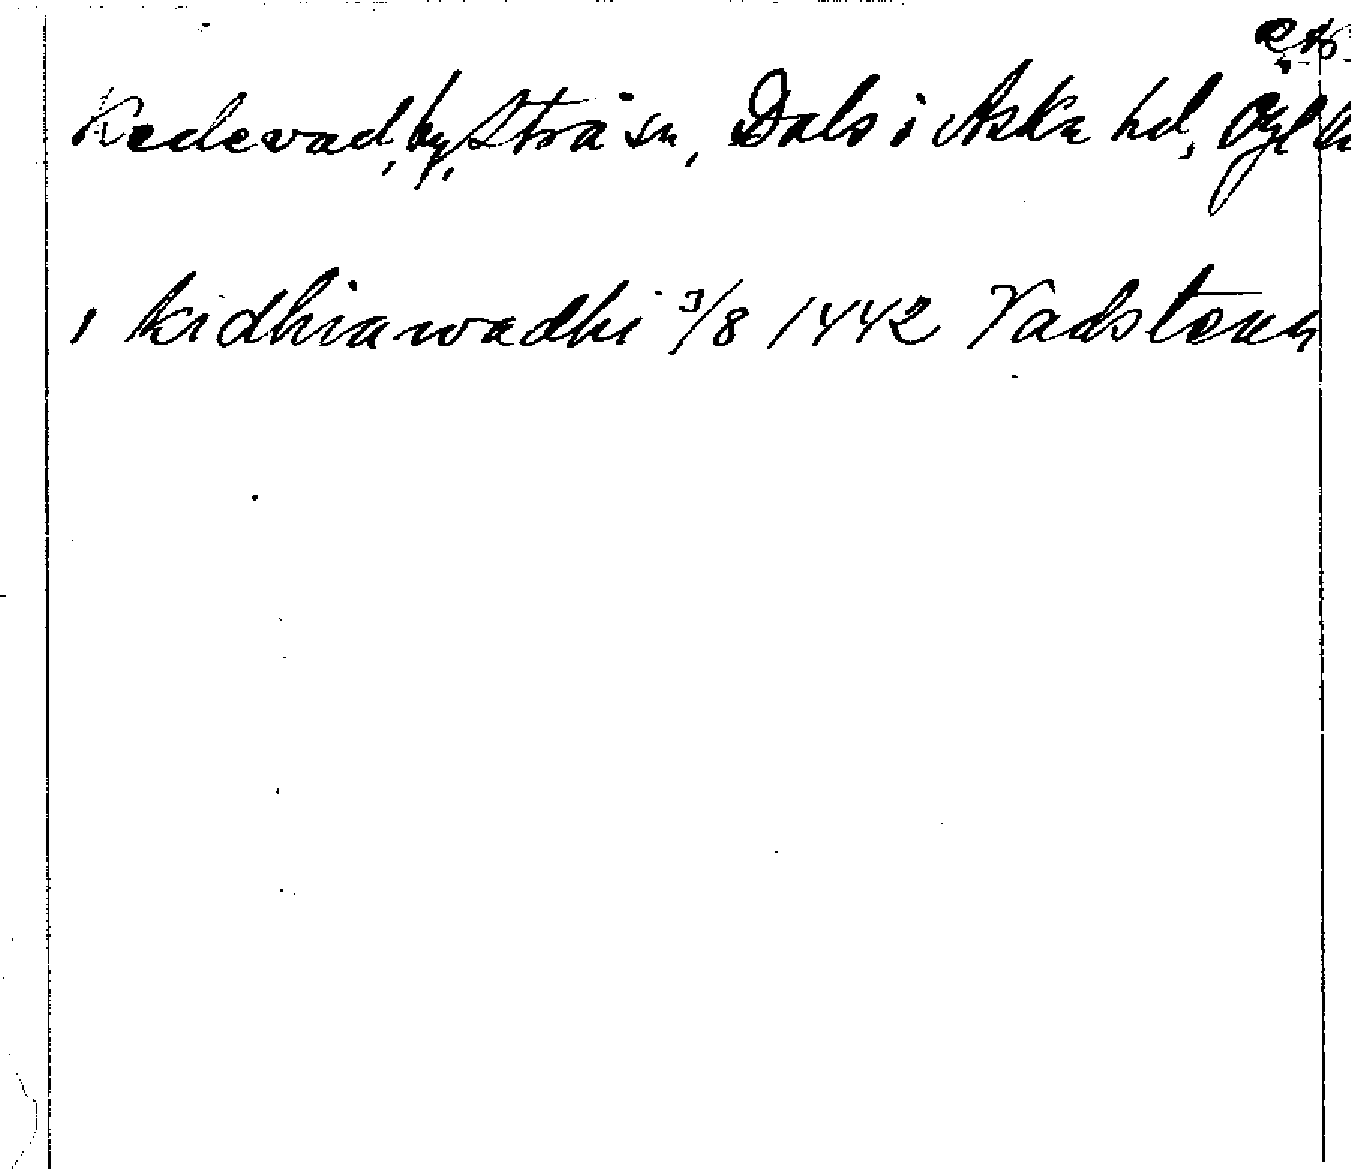 Kedevad, by, Stra sn, Dals i Aska hd, Ögl
i kidhiawadhi 3/8 1442 Vadstena